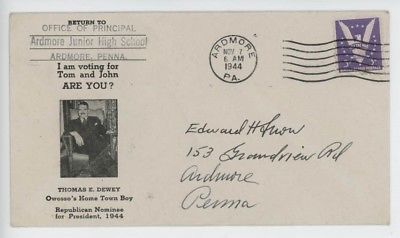 RETURN TO
OFFICE OF PRINCIPAL
Ardmore Junior High School
ARDMORE, PENNA.
I am voting for
Tom and John
ARE YOU?
THOMAS E. DEWEY
Owosso's Home Town Boy
Republican Nominee
for President, 1944
ARDMORE
NOV 7
6 AM
1944
PA.
Edward H
153 Grandview Rd
Ardmore
Penna